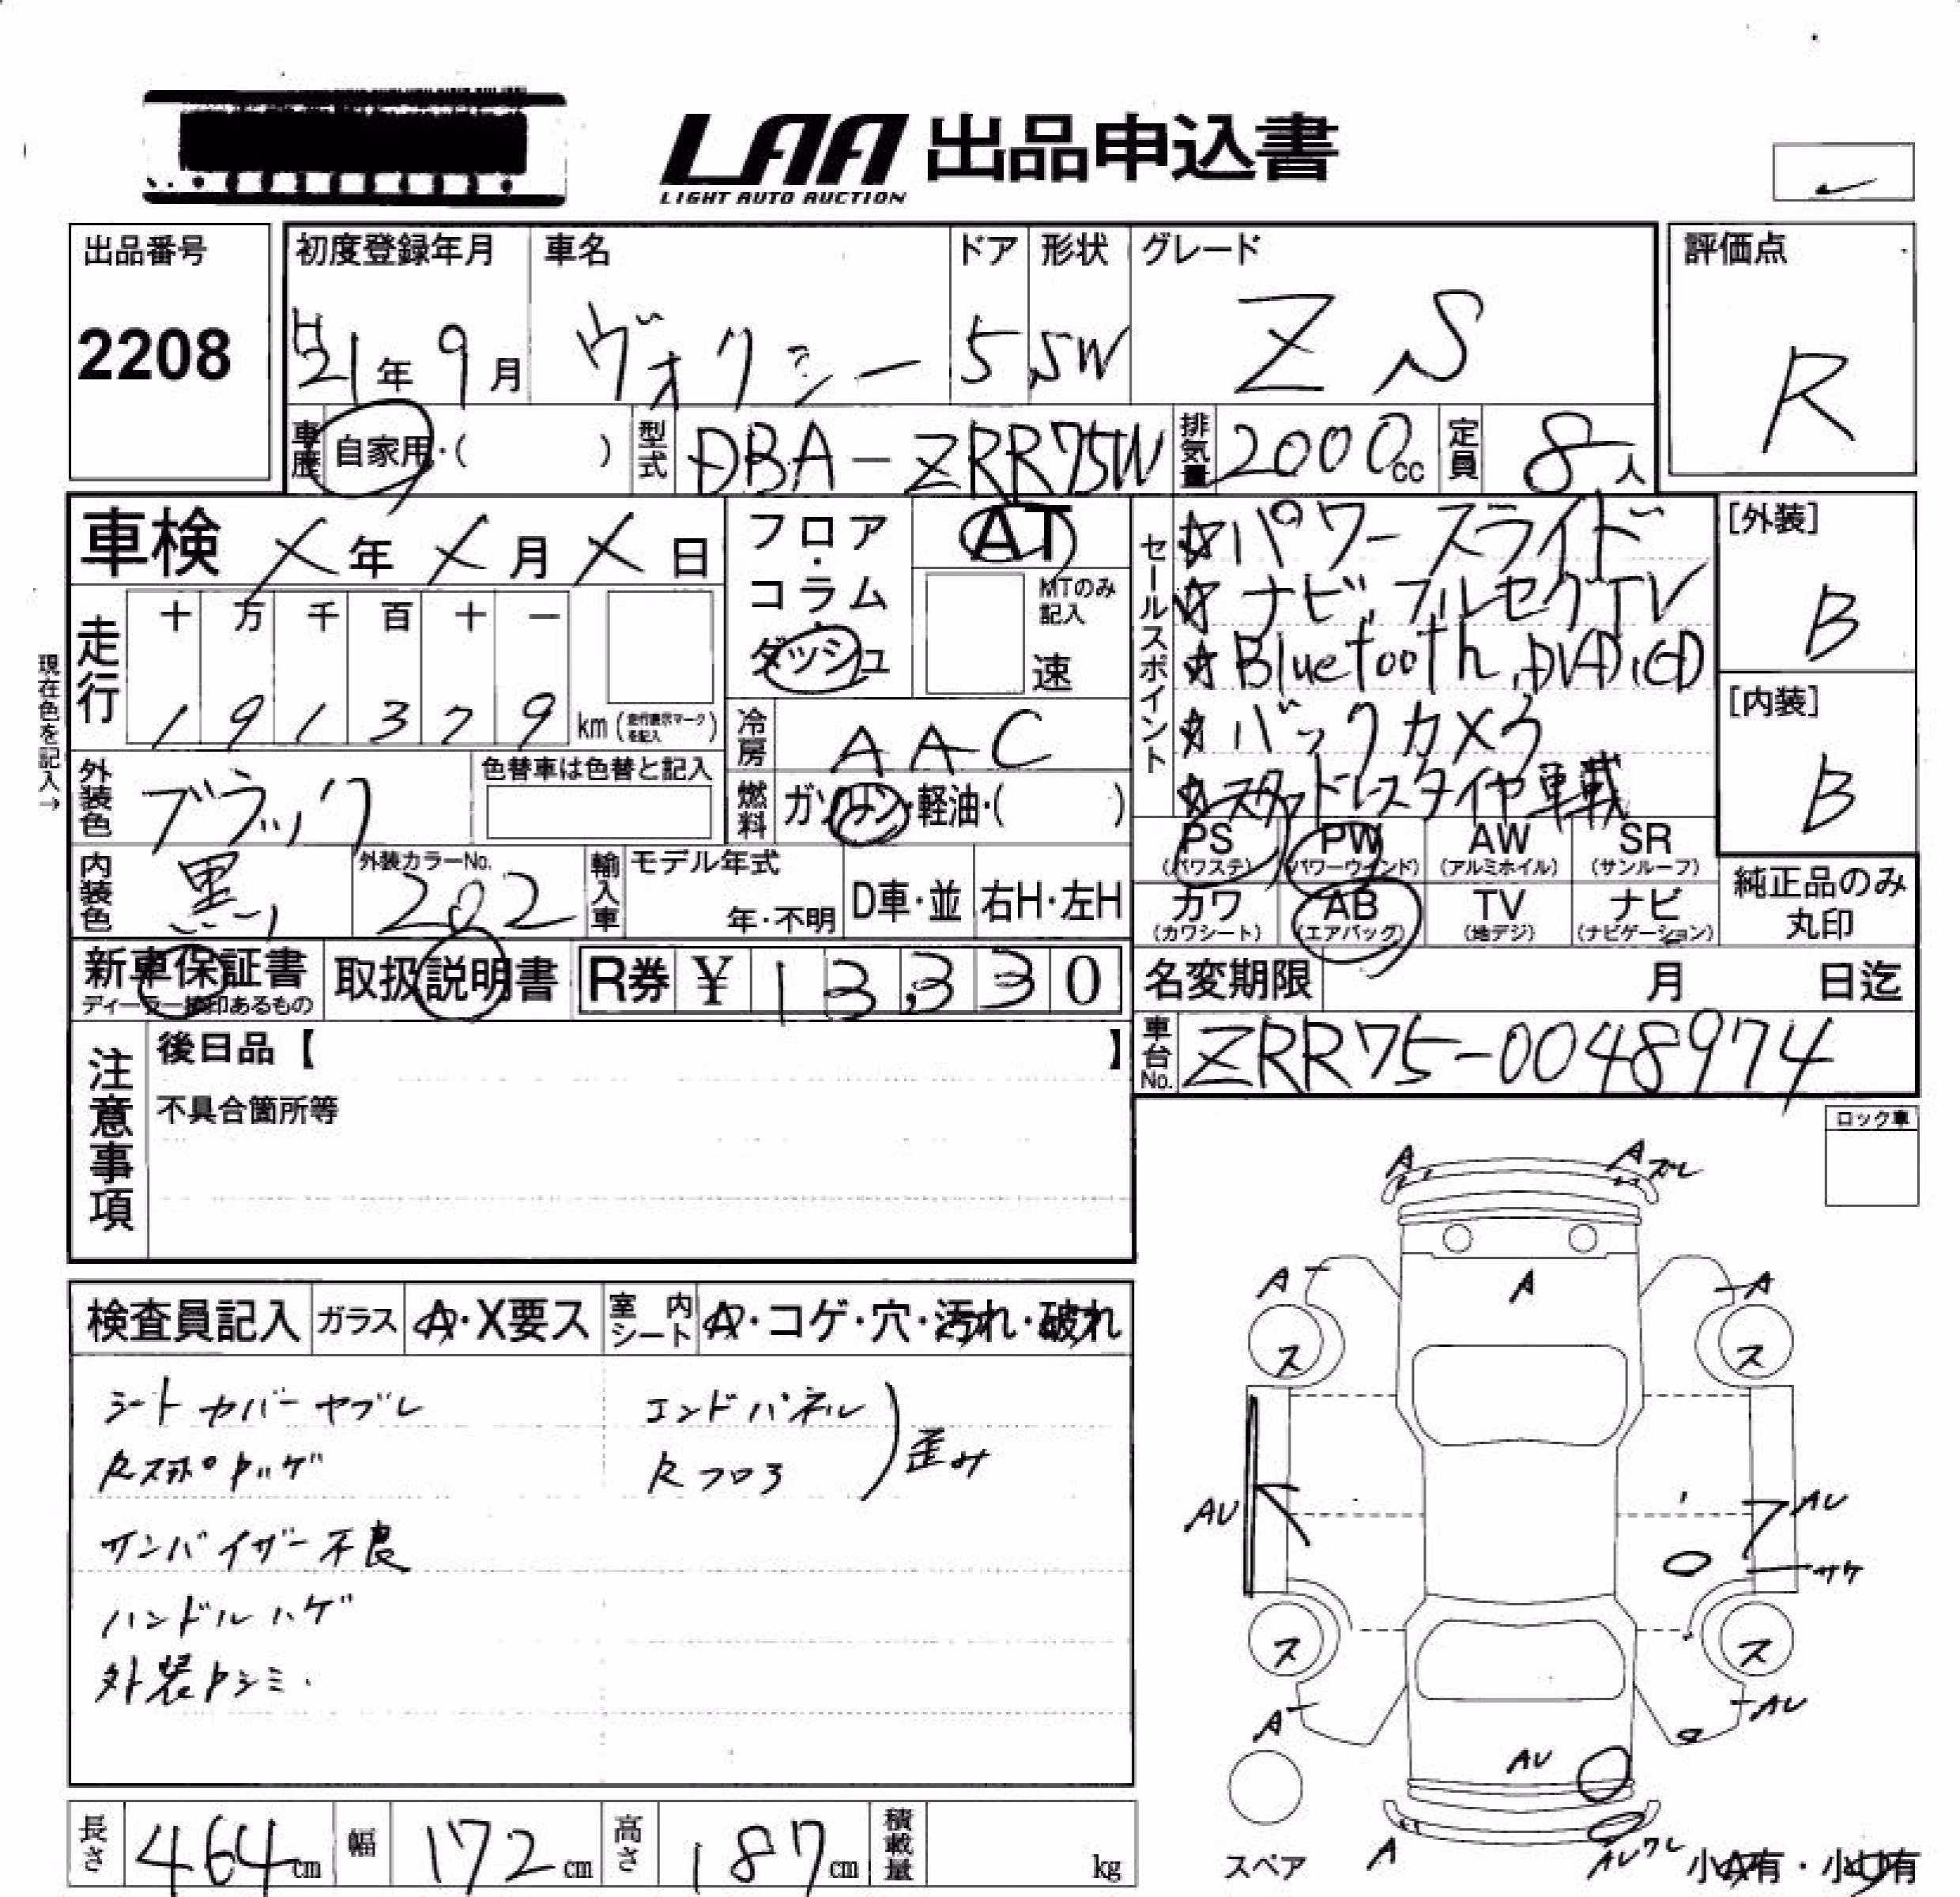 LAA 出品申込書
LIGHT AUTO AUCTION
出品番号
2208
初度登録年月
H21年9月
車名
ヴォクシー
ドア
5
形状
SW
グレード
ZS
評価点
R
車歴
自家用・( )
型式
DBA-ZRR75W
排気量
2000cc
定員
8人
車検 ×年×月×日
フロア・コラム・ダッシュ
AT
MTのみ記入
速
走行
十 万 千 百 十 一
1 9 1 3 7 9 km (走行表示マークを記入)
現在色を記入→
冷房
AAC
外装色
ブラック
色替車は色替と記入
燃料
ガソリン・軽油・( )
内装色
黒
外装カラーNo.
202
輸入車
モデル年式
年・不明
D車・並
右H・左H
セールスポイント
☆パワースライド
☆ナビ,フルセグTV
☆Bluetooth,DVD,CD
☆バックカメラ
☆スタッドレスタイヤ車載
[外装]
B
[内装]
B
PS (パワステ)
PW (パワーウインド)
AW (アルミホイル)
SR (サンルーフ)
カワ (カワシート)
AB (エアバッグ)
TV (地デジ)
ナビ (ナビゲーション)
純正品のみ丸印
新車保証書
取扱説明書
R券 ¥ 13,330
名変期限 月 日迄
車台No.
ZRR75-0048974
注意事項
後日品【 】
不具合箇所等
ロック車
検査員記入
ガラス
A・X要ス
室内シート
A・コゲ・穴・汚れ・破れ
シートカバーヤブレ
エンドパネル
Rフロア
歪み
サンバイザー不良
ハンドルハゲ
A
A ズレ
A
A
A
ス
ス
AU
AU
サケ
ス
ス
A
AU
AU
スペア
A
AU ワレ
小A有・小U有
長さ
464cm
幅
172cm
高さ
187cm
積載量
kg